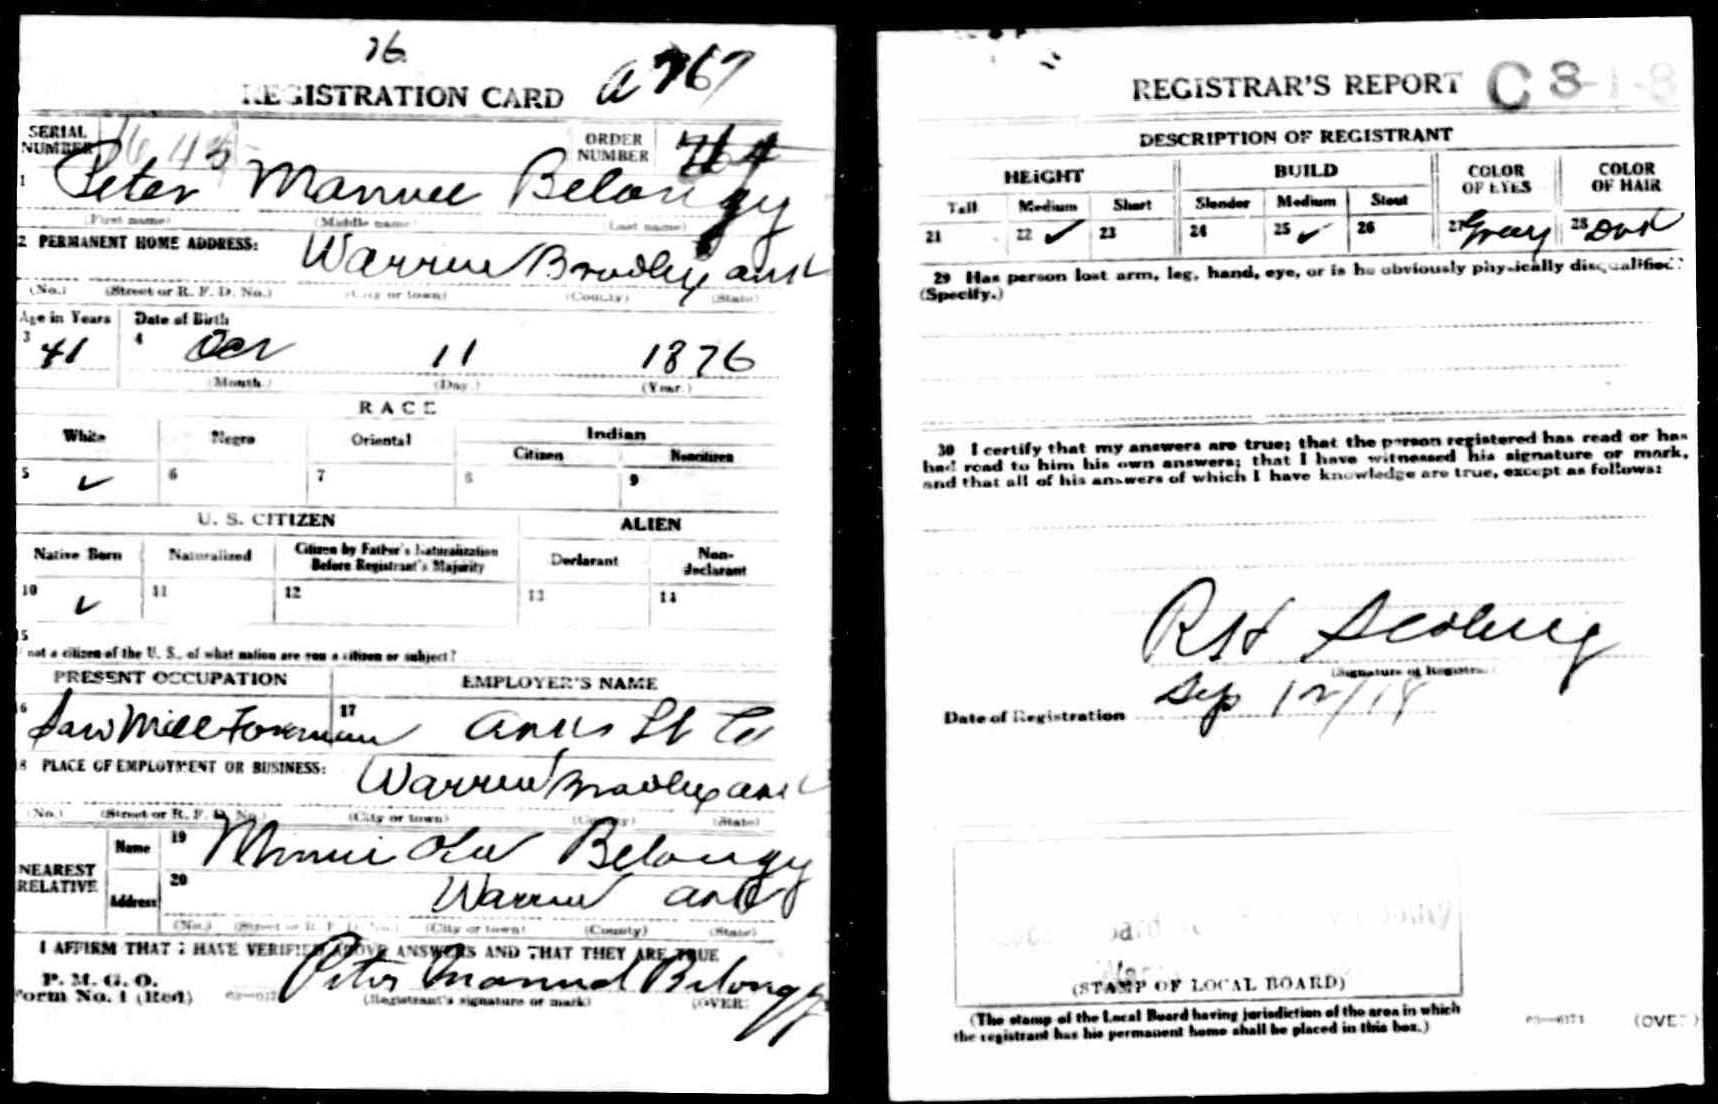 76
REGISTRATION CARD A 767
SERIAL NUMBER 1645 ORDER NUMBER
1 Peter Manuel Belongy
(First name) (Middle name) (Last name)
2 PERMANENT HOME ADDRESS: Warren Bradley ark
(No.) (Street or R. F. D. No.) (City or town) (County) (State)
Age in Years Date of Birth
3 41 4 Oct 11 1876
(Month.) (Day.) (Year.)
RACE
White Negro Oriental Indian
Citizen Noncitizen
5 ✓ 6 7 8 9
U. S. CITIZEN ALIEN
Native Born Naturalized Citizen by Father's Naturalization Before Registrant's Majority Declarant Non-declarant
10 ✓ 11 12 13 14
15
not a citizen of the U. S., of what nation are you a citizen or subject?
PRESENT OCCUPATION EMPLOYER'S NAME
6 Saw Mill Foreman 17 Co
8 PLACE OF EMPLOYMENT OR BUSINESS: Warren Bradley ark
(No.) (Street or R. F. D. No.) (City or town) (County) (State)
NEAREST RELATIVE Name 19 Minnie Belongy
Address 20 Warren ark
(No.) (Street or R. F. D. No.) (City or town) (County) (State)
I AFFIRM THAT I HAVE VERIFIED ABOVE ANSWERS AND THAT THEY ARE TRUE
P. M. G. O.
Form No. 1 (Red) Peter Manuel Belongy
(Registrant's signature or mark) (OVER)
REGISTRAR'S REPORT C 3-1-8
DESCRIPTION OF REGISTRANT
HEIGHT BUILD COLOR OF EYES COLOR OF HAIR
Tall Medium Short Slender Medium Stout
21 22 ✓ 23 24 25 ✓ 26 27 Gray 28
29 Has person lost arm, leg, hand, eye, or is he obviously physically disqualified?
(Specify.)
30 I certify that my answers are true; that the person registered has read or has
had read to him his own answers; that I have witnessed his signature or mark,
and that all of his answers of which I have knowledge are true, except as follows:
R H
(Signature of Registrar)
Date of Registration Sep 12/18
(STAMP OF LOCAL BOARD)
(The stamp of the Local Board having jurisdiction of the area in which
the registrant has his permanent home shall be placed in this box.)
03—6171 (OVER)